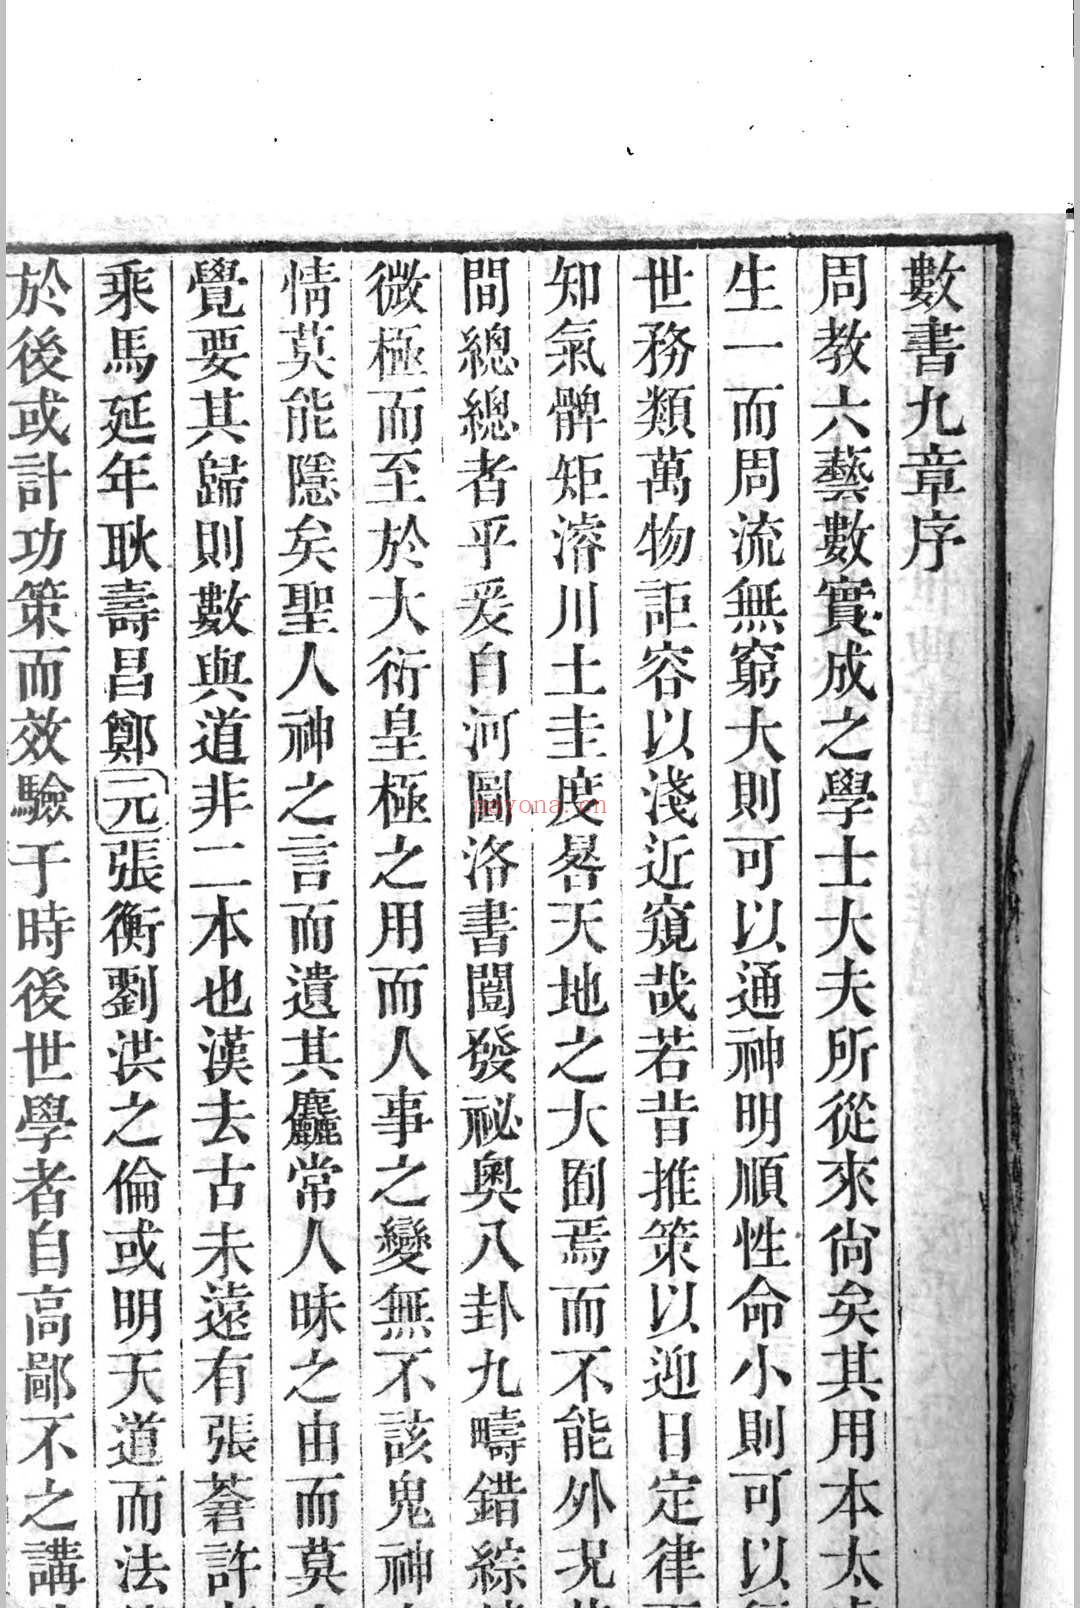 數書九章序
周教六藝數實成之學士大夫所從來尙矣其用本太
生一而周流無窮大則可以通神明順性命小則可以
世務類萬物詎容以淺近窺哉若昔推策以迎日定律
知氣髀矩濬川土圭度晷天地之大囿焉而不能外況
間總總者乎爰自河圖洛書闓發祕奥八卦九疇錯綜
微極而至於大衍皇極之用而人事之變無不該鬼神
情莫能隱矣聖人神之言而遺其麤常人昧之由而莫
覺要其歸則數與道非二本也漢去古未遠有張蒼許
乘馬延年耿壽昌鄭元張衡劉洪之倫或明天道而法
於後或計功策而效驗于時後世學者自高鄙不之講
nayona.cn